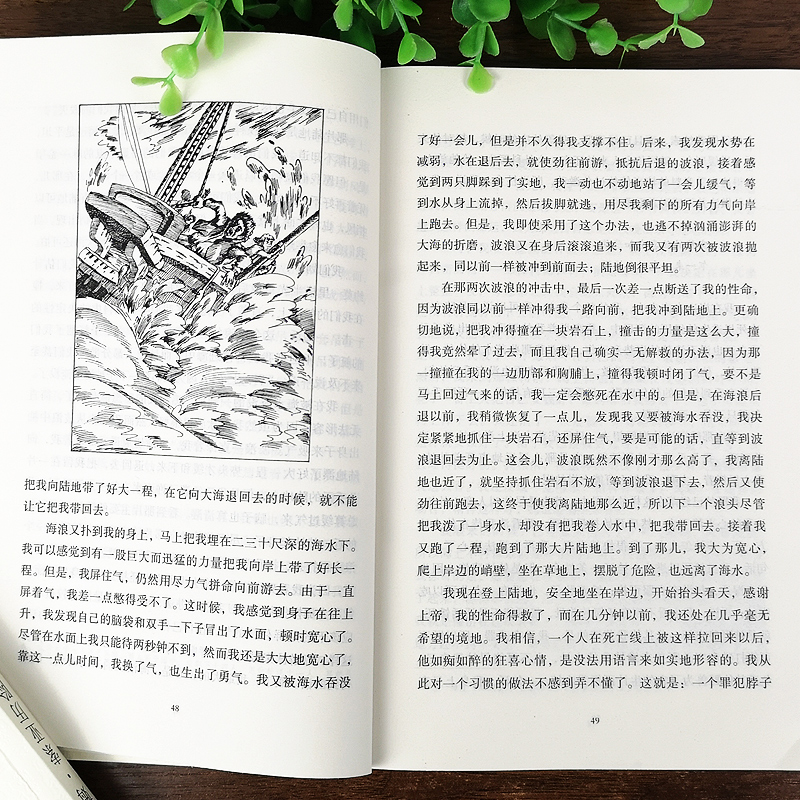 把我向陆地带了好大一程，在它向大海退回去的时候，就不能
让它把我带回去。
海浪又扑到我的身上，马上把我埋在二三十尺深的海水下。
我可以感觉到有一股巨大而迅猛的力量把我向岸上带了好长一
程。但是，我屏住气，仍然用尽力气拼命向前游去。由于一直
屏着气，我差一点憋得受不了。这时候，我感觉到身子在往上
升，我发现自己的脑袋和双手一下子冒出了水面，顿时宽心了。
尽管在水面上我只能待两秒钟不到，然而我还是大大地宽心了，
靠这一点儿时间，我换了气，也生出了勇气。我又被海水吞没
48
了好一会儿，但是并不久得我支撑不住。后来，我发现水势在
减弱，水在退后去，就使劲往前游，抵抗后退的波浪，接着感
觉到两只脚踩到了实地，我一动也不动地站了一会儿缓气，等
到水从身上流掉，然后拔脚就逃，用尽我剩下的所有力气向岸
上跑去。但是，我即使采用了这个办法，也逃不掉汹涌澎湃的
大海的折磨，波浪又在身后滚滚追来，而我又有两次被波浪抛
起来，同以前一样被冲到前面去；陆地倒很平坦。
在那两次波浪的冲击中，最后一次差一点断送了我的性命，
因为波浪同以前一样冲得我一路向前，把我冲到陆地上。更确
切地说，把我冲得撞在一块岩石上，撞击的力量是这么大，撞
得我竟然晕了过去，而且我自己确实一无解救的办法，因为那
一撞撞在我的一边肋部和胸脯上，撞得我顿时闭了气，要不是
马上回过气来的话，我一定会憋死在水中的。但是，在海浪后
退以前，我稍微恢复了一点儿，发现我又要被海水吞没，我决
定紧紧地抓住一块岩石，还屏住气，要是可能的话，直等到波
浪退回去为止。这会儿，波浪既然不像刚才那么高了，我离陆
地也近了，就坚持抓住岩石不放，等到波浪退下去，然后又使
劲往前跑去，这终于使我离陆地那么近，所以下一个浪头尽管
把我泼了一身水，却没有把我卷入水中，把我带回去。接着我
又跑了一程，跑到了那大片陆地上。到了那儿，我大为宽心，
爬上岸边的峭壁，坐在草地上，摆脱了危险，也远离了海水。
我现在登上陆地，安全地坐在岸边，开始抬头看天，感谢
上帝，我的性命得救了，而在几分钟以前，我还处在几乎毫无
希望的境地。我相信，一个人在死亡线上被这样拉回来以后，
他如痴如醉的狂喜心情，是没法用语言来如实地形容的。我从
此对一个习惯的做法不感到弄不懂了。这就是：一个罪犯脖子
49